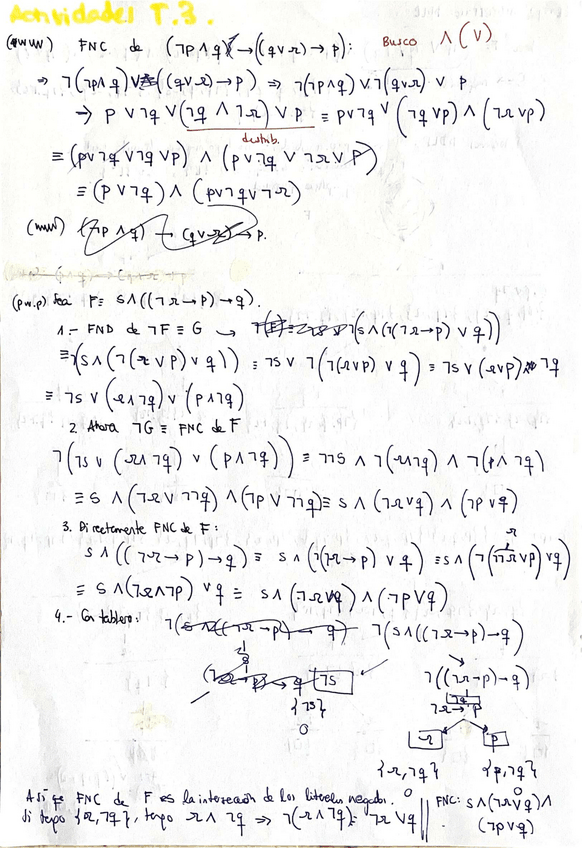 Actividades T.3.
FNC de (¬p∧q) → ((q∨r) → p): Busco ∧(∨)
⇒ ¬(¬p∧q) ∨ ((q∨r) → p) ⇒ ¬(¬p∧q) ∨ ¬(q∨r) ∨ p
→ p ∨ ¬q ∨ (¬q ∧ ¬r) ∨ p ≡ p∨¬q ∨ (¬q ∨p) ∧ (¬r ∨p)
distrib.
≡ (p∨¬q ∨¬q ∨p) ∧ (p∨¬q ∨ ¬r ∨ p)
≡ (p ∨ ¬q) ∧ (p∨¬q∨ ¬r)
(¬p ∧ q) → (q∨r) → p.
Sea F≡ s∧((¬r→p)→q).
1.- FND de ¬F ≡ G ⟶ ¬(s∧(¬(¬r→p) ∨ q))
≡ ¬(s∧(¬(r∨p) ∨ q)) ≡ ¬s ∨ ¬(¬(r∨p) ∨ q) ≡ ¬s ∨ (r∨p) ∧ ¬q
≡ ¬s ∨ (r∧¬q) ∨ (p∧¬q)
2. Ahora ¬G ≡ FNC de F
¬(¬s ∨ (r∧¬q) ∨ (p∧¬q)) ≡ ¬¬s ∧ ¬(r∧¬q) ∧ ¬(p∧¬q)
≡ s ∧ (¬r∨ ¬¬q) ∧ (¬p ∨ ¬¬q) ≡ s ∧ (¬r∨q) ∧ (¬p ∨q)
3. Directamente FNC de F:
s∧((¬r→p)→q) ≡ s∧(¬(¬r→p) ∨ q) ≡ s∧(¬(¬¬r∨p) ∨q)
r
≡ s∧(¬r∧¬p) ∨q ≡ s∧(¬r∨q) ∧ (¬p∨q)
4.- Con tablero: ¬(s∧((¬r→p)→q) ¬(s∧((¬r→p)→q)
¬s ¬((¬r→p)→q)
{¬s} ¬q
¬r→p
r p
{r,¬q} {p,¬q}
Así q FNC de F es la intersección de los literales negados.
Si tengo {r,¬q}, tengo r∧¬q ⇒ ¬(r∧¬q) = ¬r∨q
FNC: s∧(¬r∨q)∧
(¬p∨q)